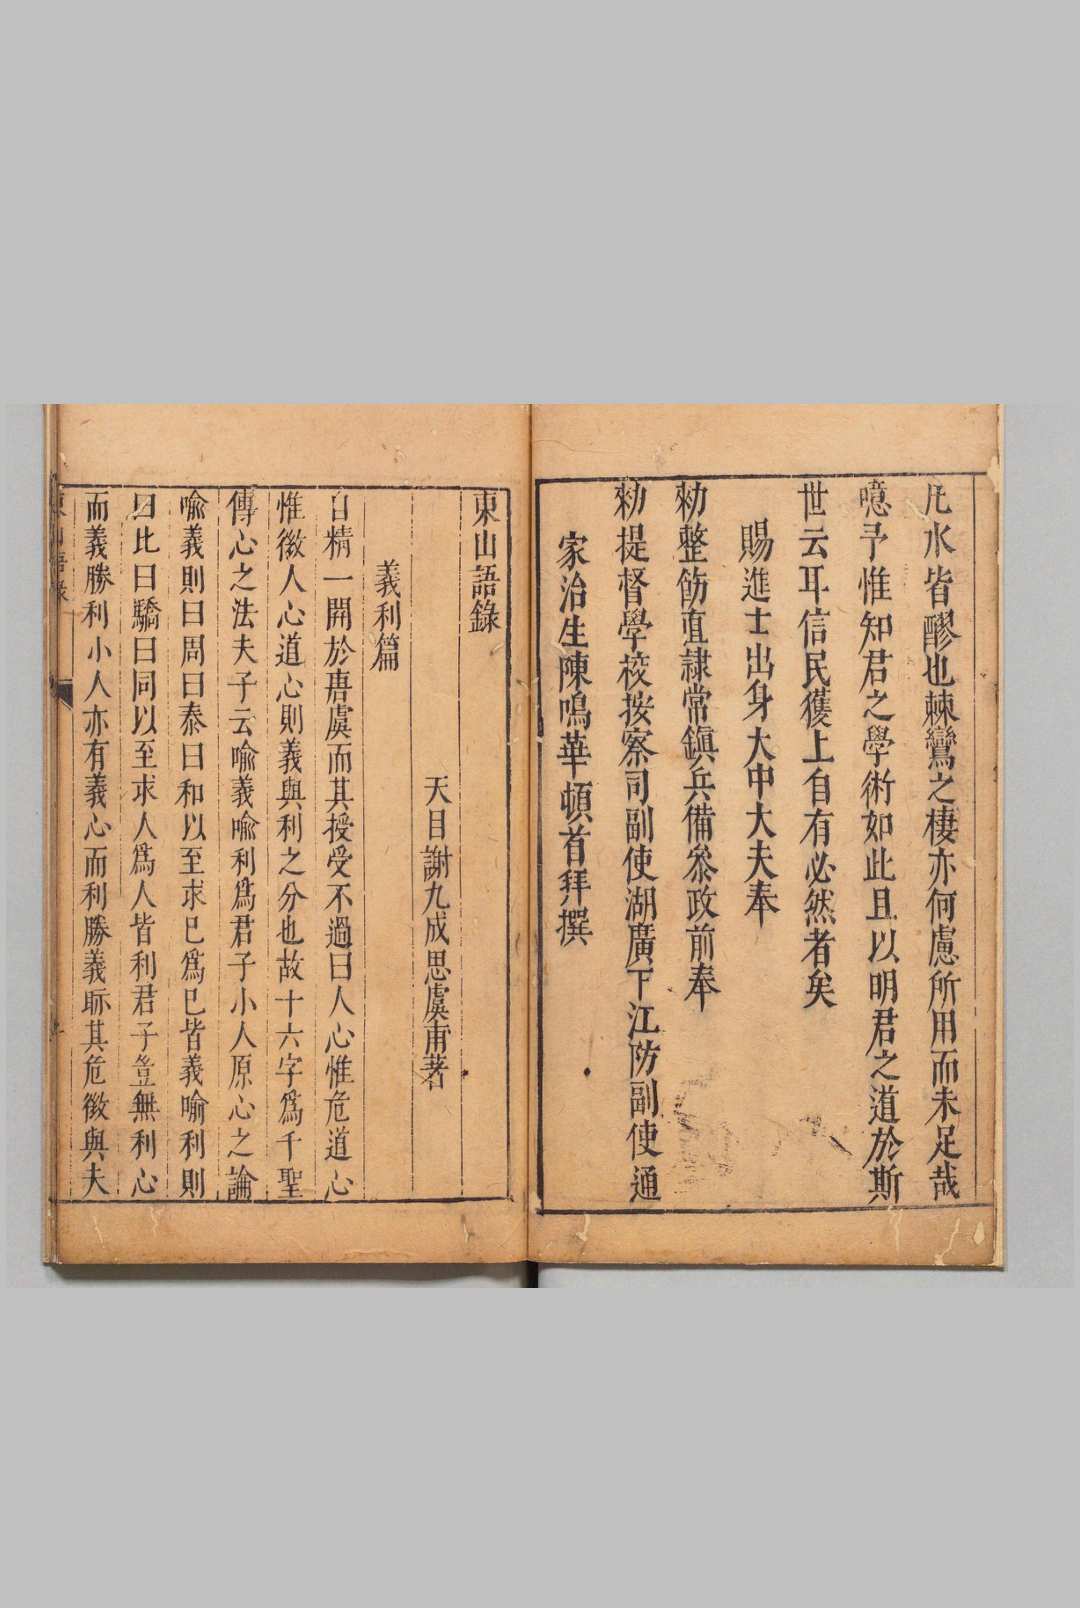 凡水皆醪也棘鸞之棲亦何慮所用而未足哉
噫予惟知君之學術如此且以明君之道於斯
世云耳信民獲上自有必然者矣
賜進士出身大中大夫奉
勑整飭直隸常鎮兵備叅政前奉
勑提督學校按察司副使湖廣下江防副使通
家治生陳鳴華頓首拜撰
東山語錄
天目謝九成思虞甫著
義利篇
自精一開於唐虞而其授受不過曰人心惟危道心
惟微人心道心則義與利之分也故十六字爲千聖
傳心之法夫子云喻義喻利爲君子小人原心之論
喻義則曰周曰泰曰和以至求已爲已皆義喻利則
曰比曰驕曰同以至求人爲人皆利君子豈無利心
而義勝利小人亦有義心而利勝義眎其危微與夫
東山語錄